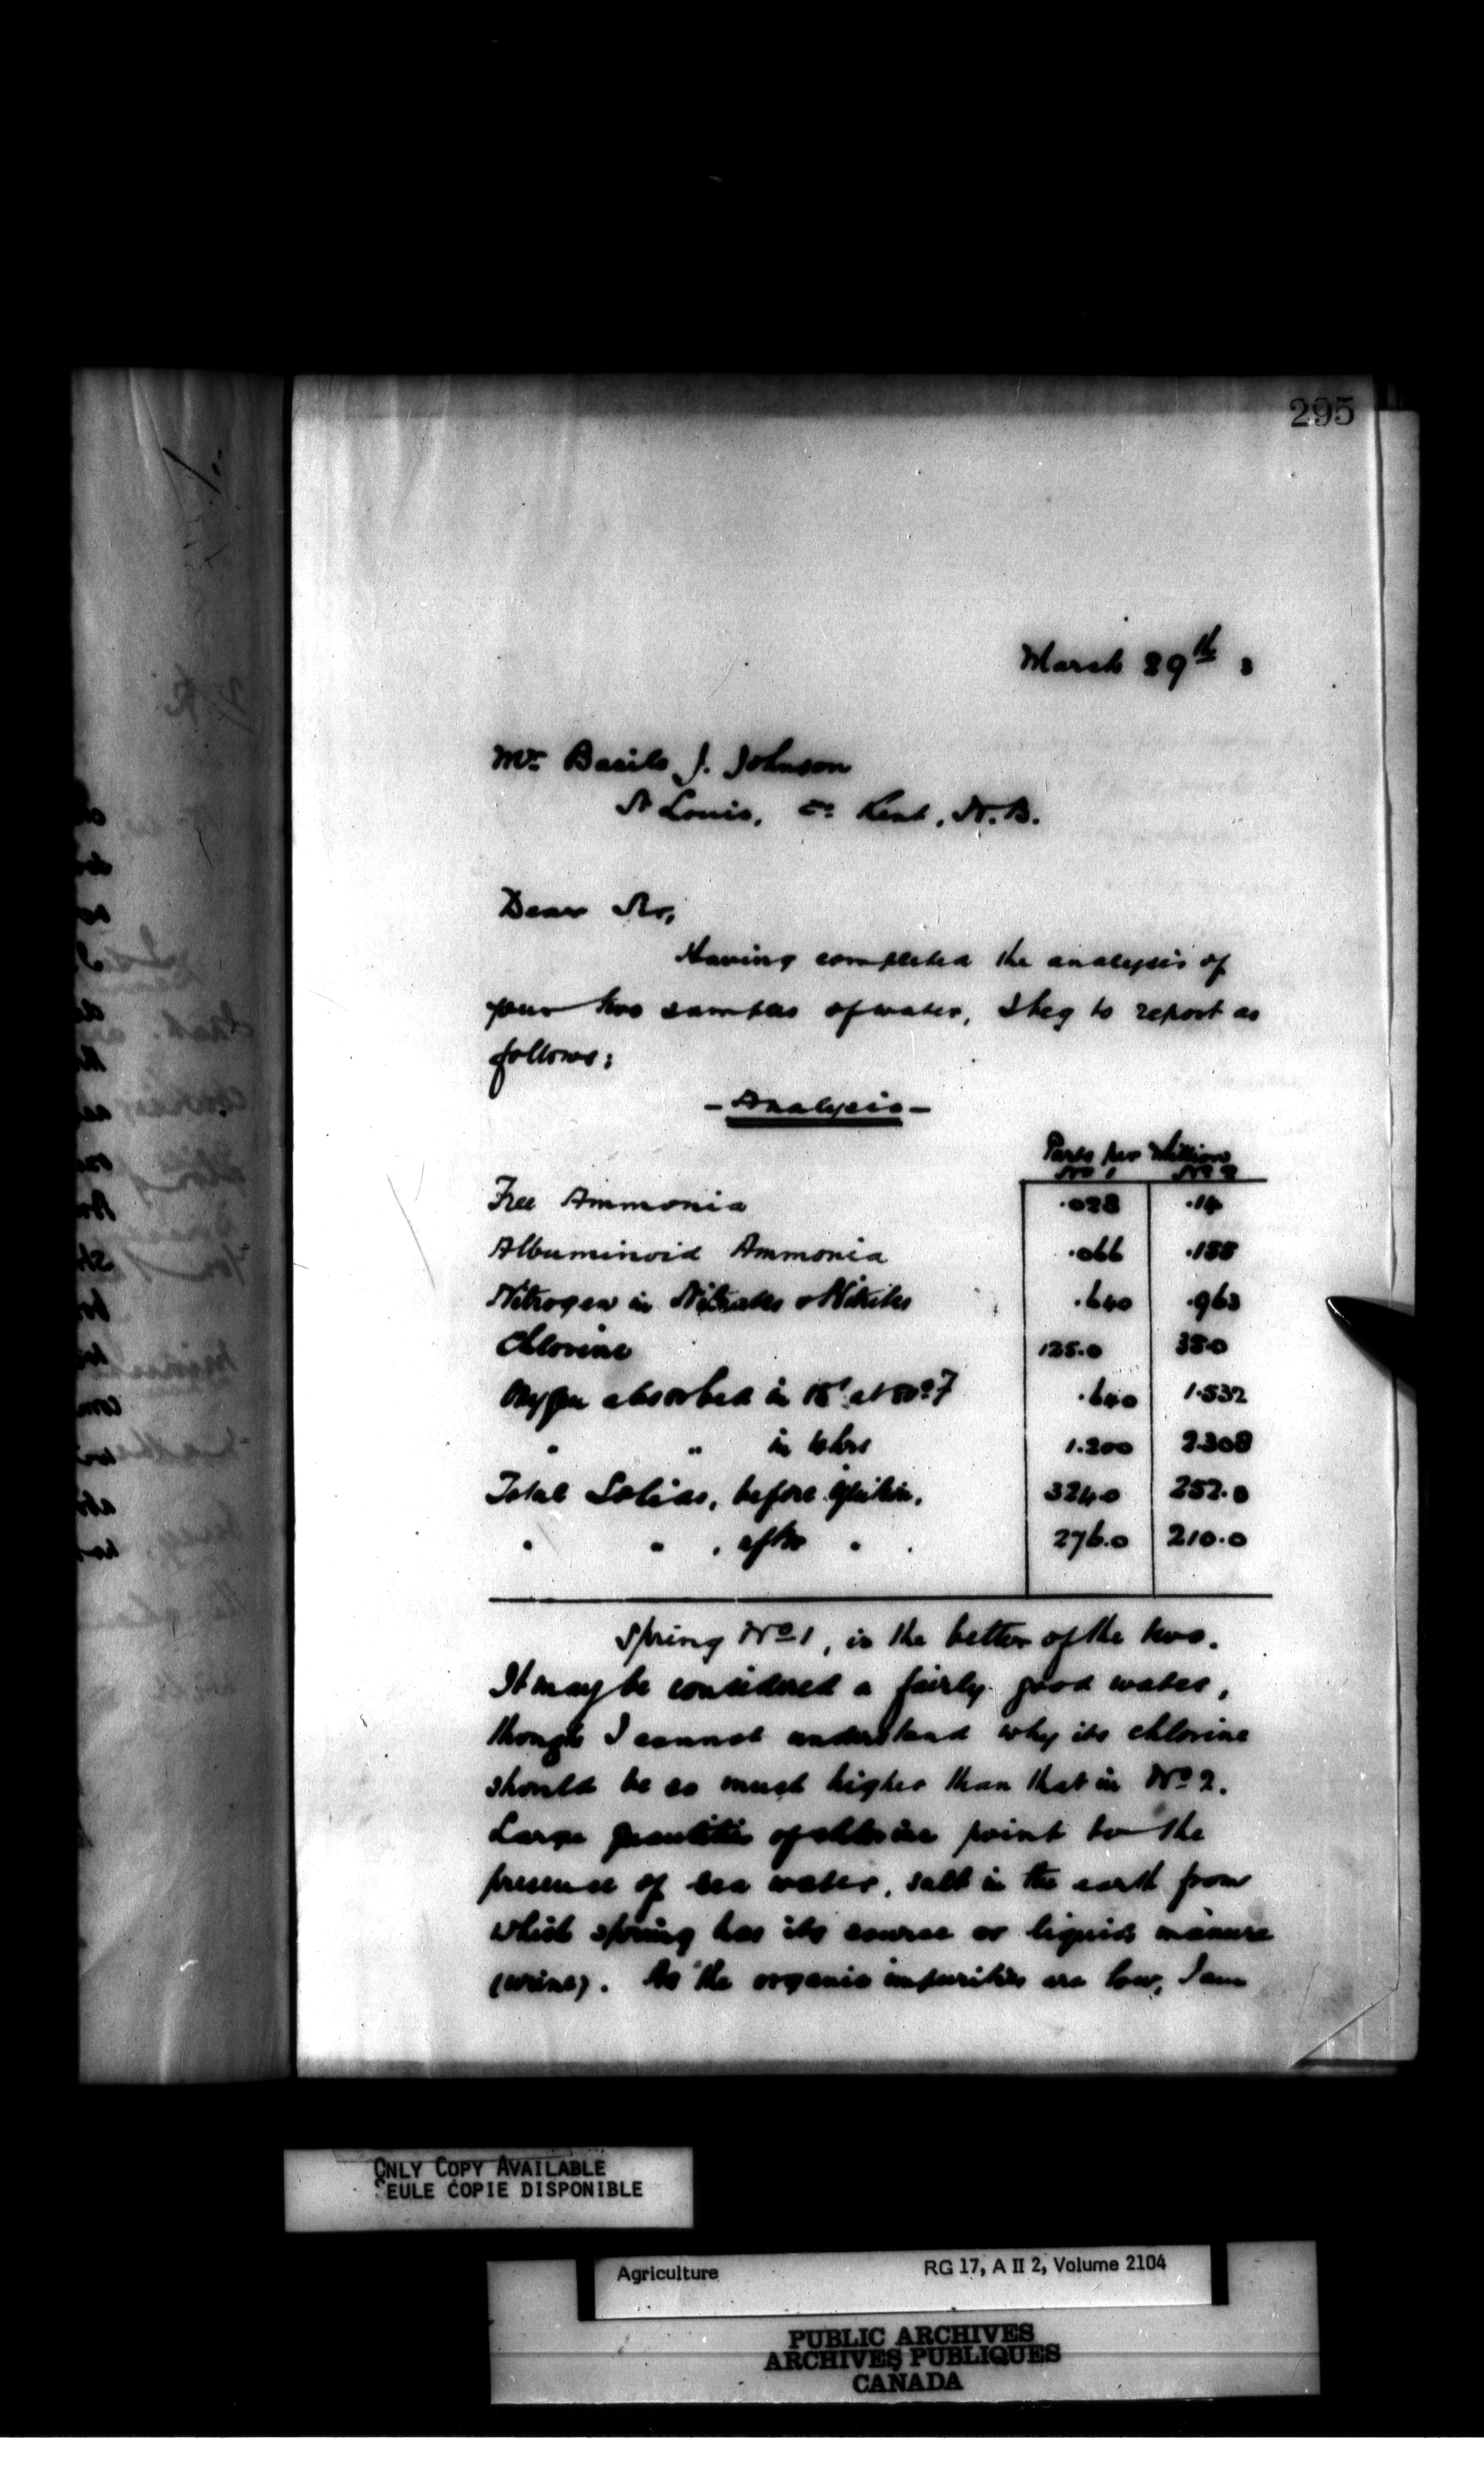 295
March 29th 3
Mr. Basile J. Johnson
St Louis, Co. Kent, N.B.
Dear Sir,
Having completed the analysis of
your two samples of water, I beg to report as
follows:
- Analysis -
Parts per Million
No 1 No 2
Free Ammonia .028 .14
Albuminoid Ammonia .066 .155
Nitrogen in Nitrates & Nitrites .640 .963
Chlorine 125.0 35.0
Oxygen absorbed in 15' at 80° F .640 1.532
" " in 4 hrs 1.200 2.308
Total Solids, before ignition, 324.0 252.0
" " , after " . 276.0 210.0
Spring No 1, is the better of the two.
It may be considered a fairly good water,
though I cannot understand why its chlorine
should be so much higher than that in No 2.
Large quantities of chlorine point to the
presence of sea water, salt in the earth from
which spring has its source or liquid manure
(urine). As the organic impurities are low, I am
ONLY COPY AVAILABLE
SEULE COPIE DISPONIBLE
Agriculture RG 17, A II 2, Volume 2104
PUBLIC ARCHIVES
ARCHIVES PUBLIQUES
CANADA